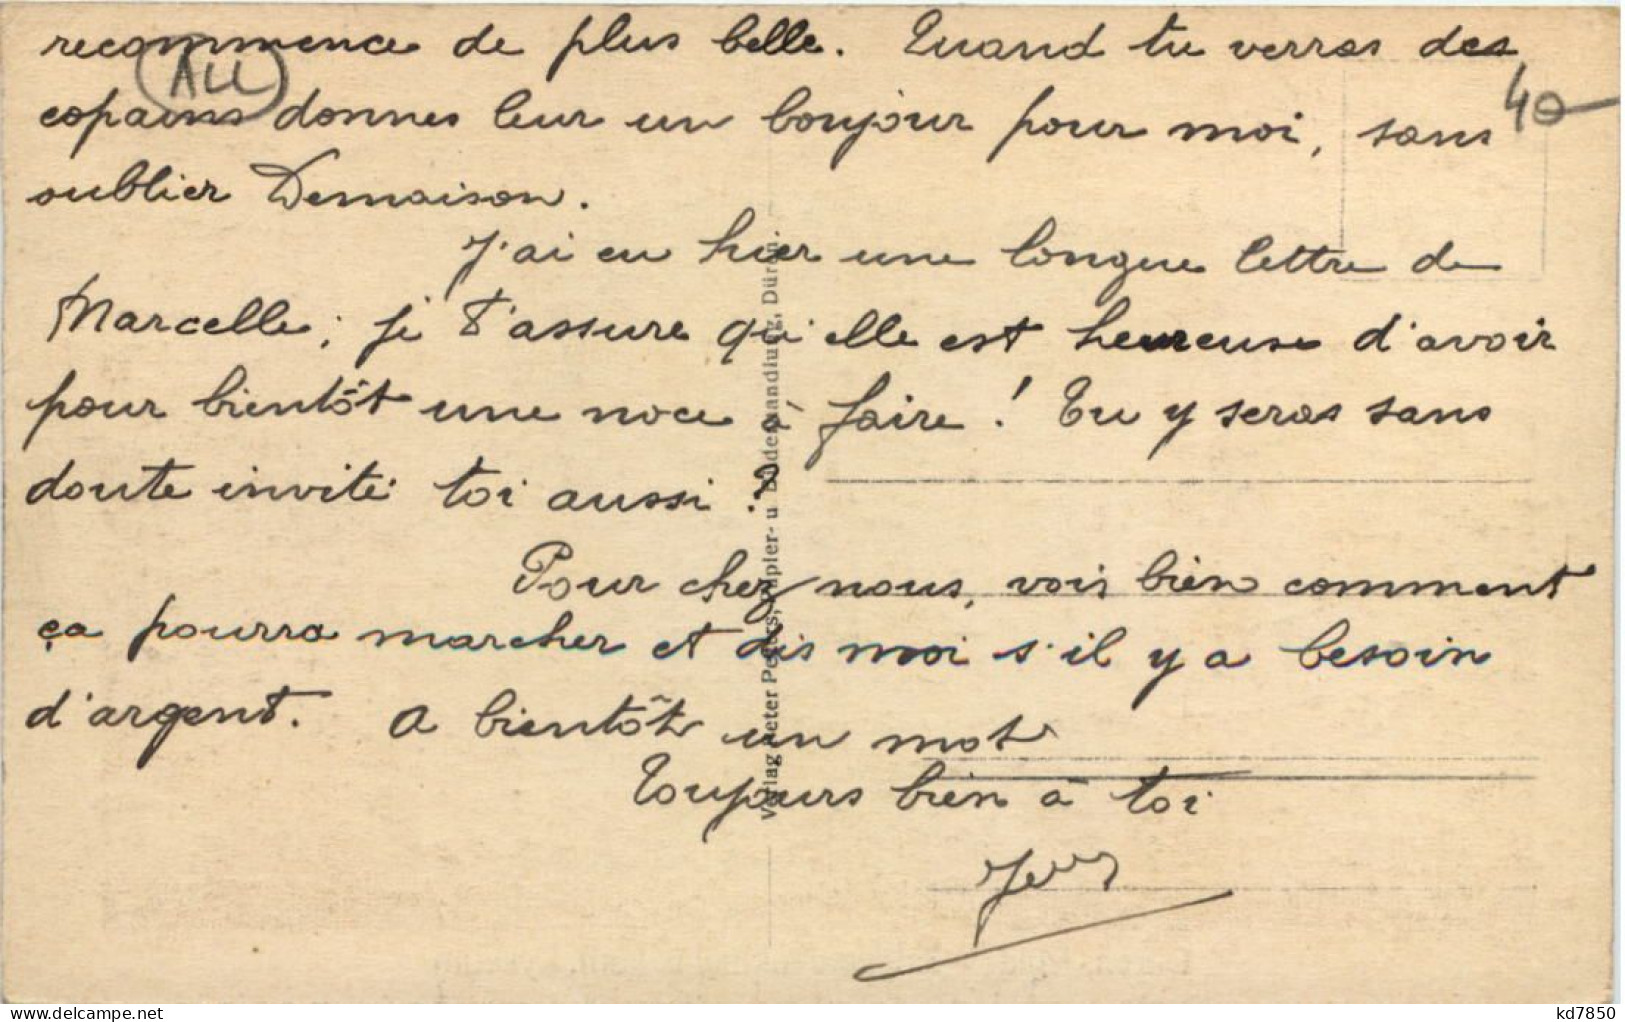 recommence de plus belle. Quand tu verras des
ALL
40
copains donnes leur un bonjour pour moi, sans
oublier Demaison.
J'ai eu hier une longue lettre de
Marcelle; je t'assure qu'elle est heureuse d'avoir
pour bientôt une noce à faire! Tu y seras sans
doute invité toi aussi?
Pour chez nous, vois bien comment
ça pourra marcher et dis moi s'il y a besoin
d'argent. A bientôt un mot
Toujours bien à toi
Verlag Peter Peters, Papier- u. Düren
kd7850